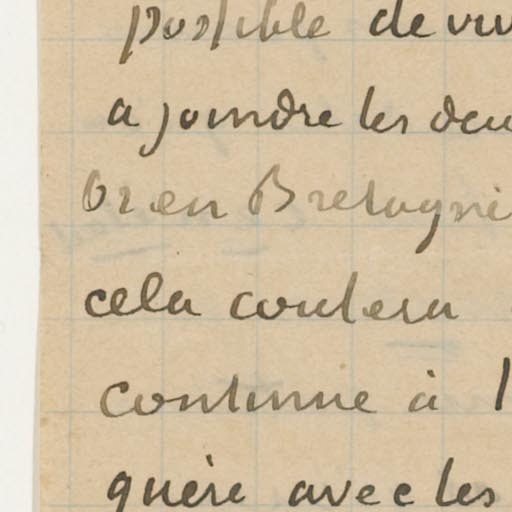 possible de viv
a joindre les deu
Or en Bretagne
cela coutera
continue à
guère avec les